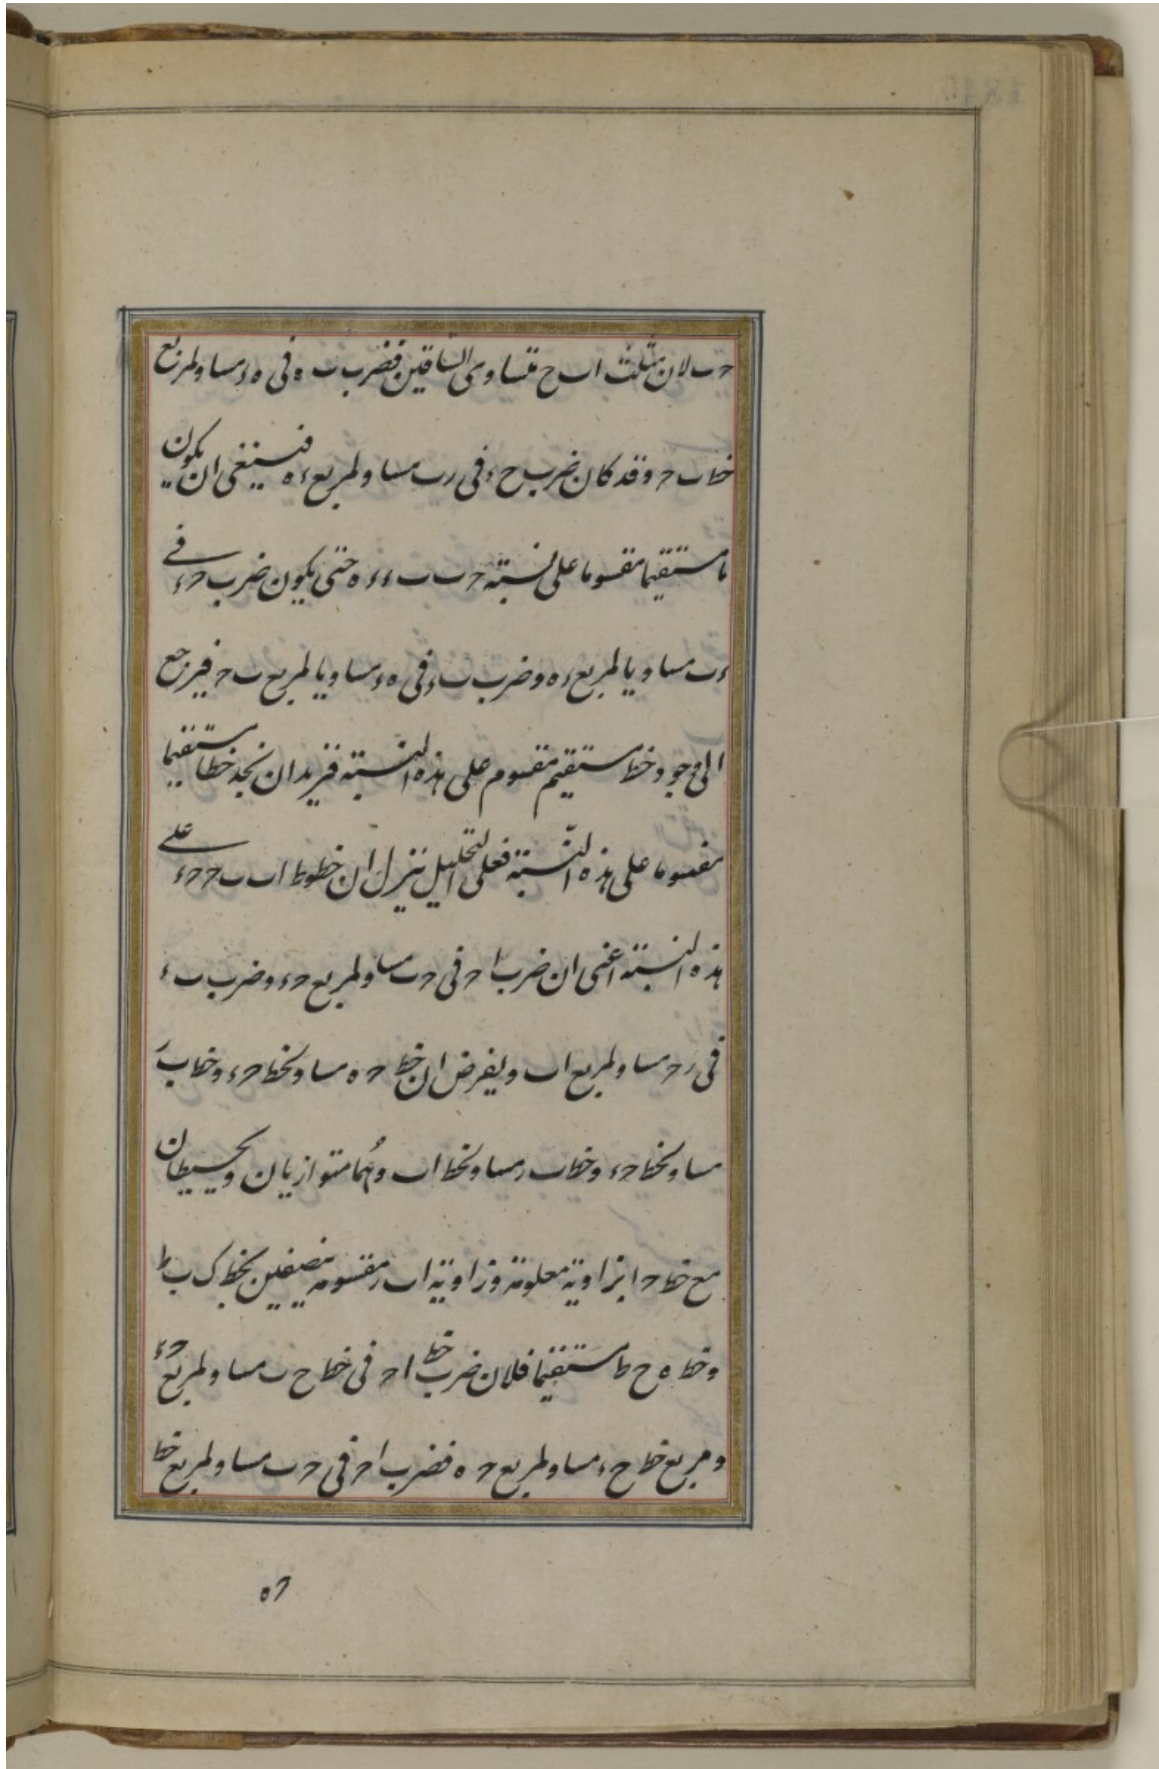 حب لان مثلث ابح متساوى الساقين فضرب ب ه فى ه ء مساو لمربع
خط ب ح وقد كان ضرب ح ء فى رب مساو لمربع ء ه فينبغى ان يكون
ما مستقيما مقسوما على نسبة ح ب ب ء ء ه حتى يكون ضرب ح ء فى
ء ب مساويا لمربع ء ه وضرب ب ء فى ه ء مساويا لمربع ب ح فيرجع
الى وجود خط مستقيم مقسوم على هذه النسبة فنريد ان نجد خطا مستقيما
مقسوما على هذه النسبة فعلى التحليل ننزل ان خطوط اب ب ح ح ء على
هذه النسبة اعنى ان ضرب ا ح فى ح ب مساو لمربع ح ء وضرب ب ء
فى ر ح مساو لمربع اب وليفرض ان خط ح ه مساو لخط ح ء وخط ب ر
مساو لخط ح ء وخط ب ر مساو لخط اب وهما متوازيان ويحيطان
مع خط ح ا بزاوية معلومة وزاوية اب ر مقسومة بنصفين بخط ك ب ط
وخط ه ح ط مستقيما فلان ضرب خط ا ح فى خط ح ب مساو لمربع ح ء
ومربع خط ح ء مساو لمربع ح ه فضرب ا ح فى ح ب مساو لمربع خط
ح ه